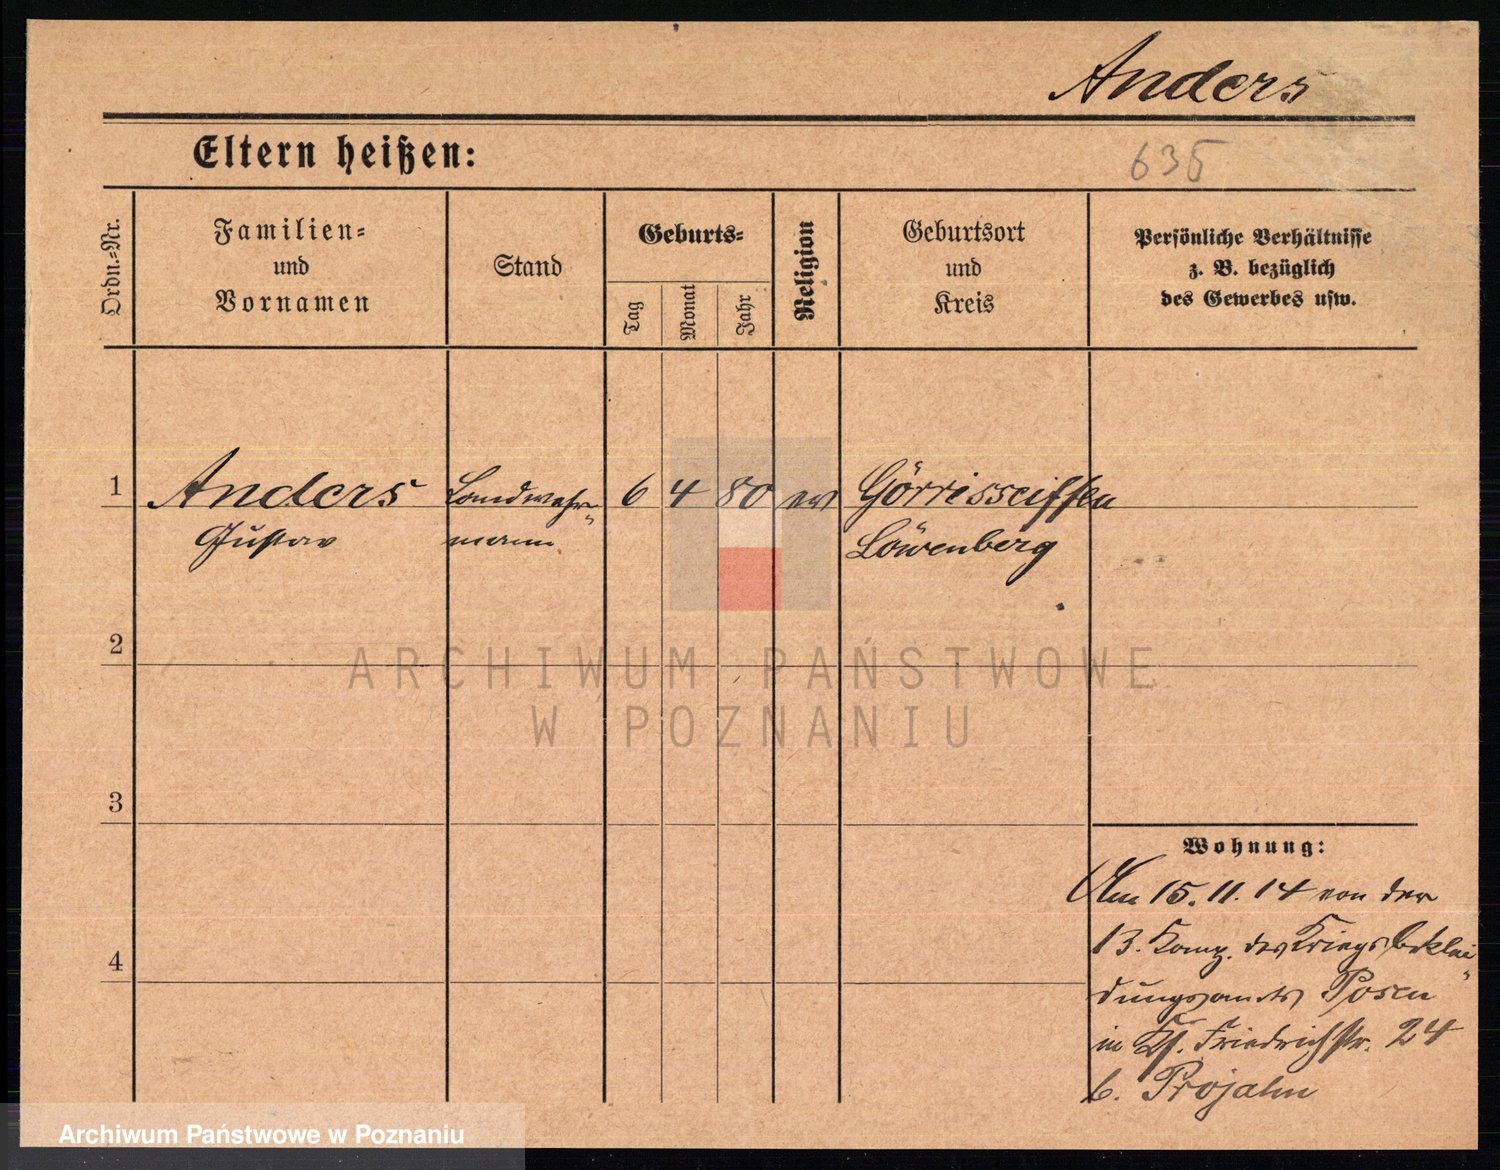 Anders
Eltern heißen:
635
Ordn.-Nr.
Familien-
und
Vornamen
Stand
Geburts-
Tag
Monat
Jahr
Religion
Geburtsort
und
Kreis
Persönliche Verhältnisse
z. B. bezüglich
des Gewerbes usw.
1 Anders Landwehr- 6 4 80 ev Görrisseiffen
Gustav mann Löwenberg
2
ARCHIWUM PAŃSTWOWE
W POZNANIU
3
Wohnung:
Am 15. 11. 14 von der
13. Komp. des Kriegsbeklei-
4
dungsamts Posen
in Kl. Friedrichstr. 24
b. Projahn
Archiwum Państwowe w Poznaniu